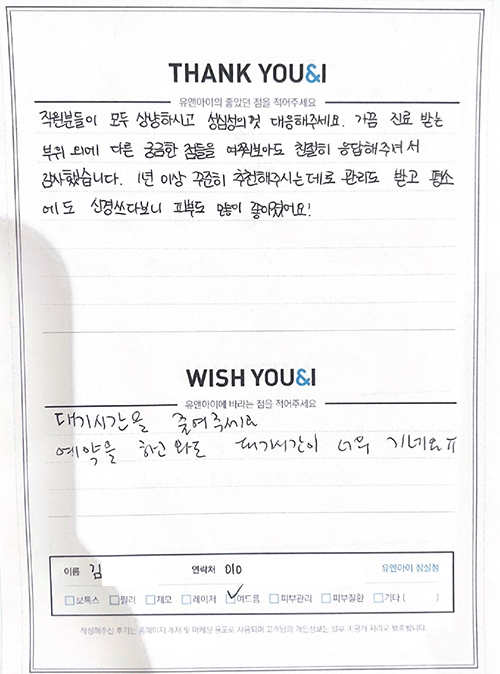 THANK YOU&I
유앤아이의 좋았던 점을 적어주세요
직원분들이 모두 상냥하시고 성심성의껏 대응해주세요. 가끔 진료 받는
부위 외에 다른 궁금한 점들을 여쭤보아도 친절히 응답해주셔서
감사했습니다. 1년 이상 꾸준히 추천해주시는데로 관리도 받고 평소
에도 신경쓰다보니 피부도 많이 좋아졌어요!
WISH YOU&I
유앤아이에 바라는 점을 적어주세요
대기시간을 줄여주세요
예약을 하고 와도 대기시간이 너무 기네요ㅠ
이름 김 연락처 010 유앤아이 잠실점
보톡스 필러 제모 레이저 여드름 피부관리 피부질환 기타 ( )
작성해주신 후기는 홈페이지 게재 및 마케팅 용도로 사용되며 고객님의 개인정보는 일부 비공개 처리로 보호됩니다.